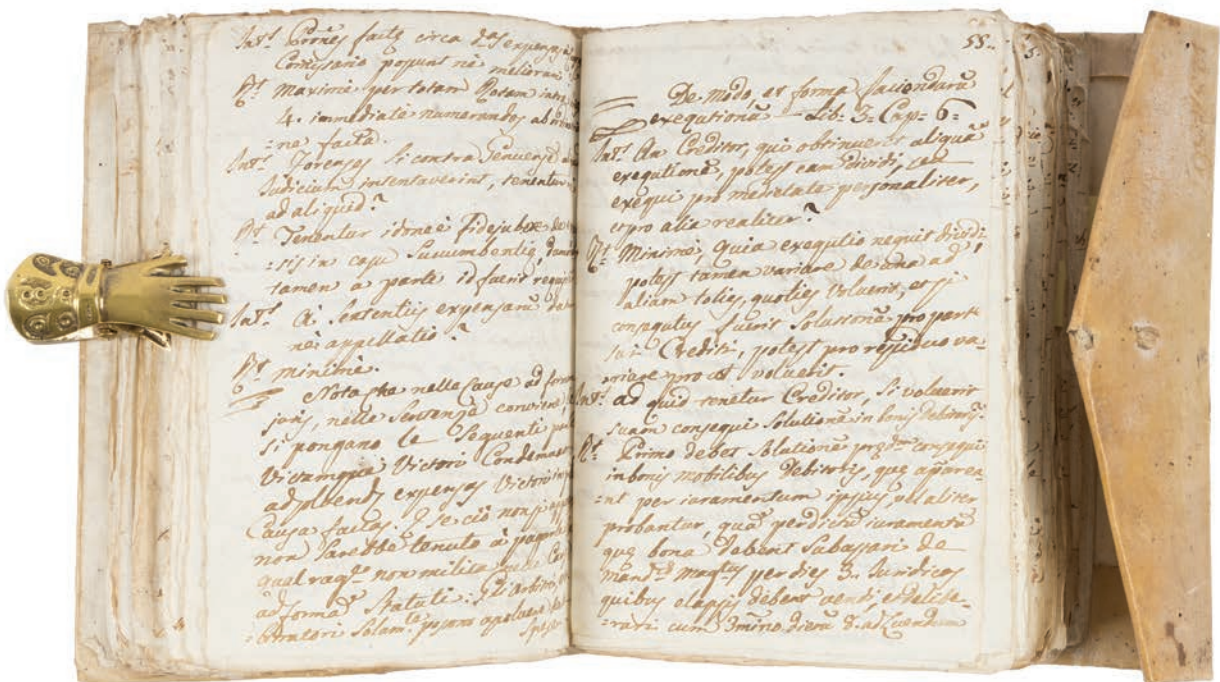 Int.t Prones factę circa d.as expensas
Comissario possunt ne meliorari
R.t Maxime per totam Rotam
4. immediate numerandos ab
-ne facta.
Int.t Forenses si contra Genuenses
Judicium intentaverint, tenentur
ad aliquid?
R.t Tenentur idonee fidejubere de
-sis in casu Sucumbentię,
tamen a parte id fuerit
Int.t A Sententiis expensarũ
ne appellatio?
R.t minime.
Nota che nelle Cause ad
juris, nelle Sentenze conviene
si pongano le Seguenti
Victumque Victori Condemn
ad solvend. expensas Victori in
Causa factas. E se ciò non si
non sarebbe tenuto à pagar
qual rag.e non milita
ad forma Statuti. Gli Arbitri,
-bratori Solam.te possono
55.
De modo, et forma faciendarũ
exequtionũ Lib: 3. Cap: 6=
Int.t An Creditor, qui obtinuerit aliquã
exequtionẽ, potest eam dividi, seu
exequi pro medietate personaliter,
et pro alia realiter?
R.t Minime, Quia exequtio nequit dividi;
potest tamen variare de una ad
aliam toties, quoties Voluerit, et si
consequtus fuerit Solutionẽ pro parte
sui Crediti, potest pro residuo va-
-riare prout voluerit.
Int.t ad quid tenetur Creditor, Si voluerit
suam consequi Solutionẽ in bonis Debitoris
R.t Primo debet Solutionẽ consequi
in bonis mobilibus Debitoris, quę aparea-
-nt per iuramentum ipsius, vel aliter
probantur, quã per dictũ iuramentũ
quę bona debent Subastari de
mand.o Mag.tus per dies 3. Juridicos
quibus elapsis debent vendi, et delibe-
-rari cum 3mino dierũ 8. ad Luendum